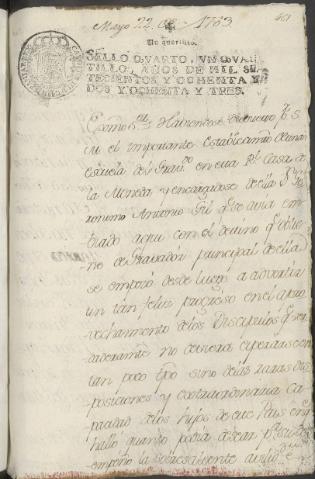 Mayo 22 de 1783
Un quartillo.
SELLO QUARTO, UN QUAR
TILLO, AÑOS DE MIL SE
TECIENTOS Y OCHENTA Y
DOS Y OCHENTA Y TRES.
Exmo Sor Haviendose
el importante Establecimto de una
Escuela de Grav.do en esta Rl Casa de
la Moneda y encargadose de ella Dn Ge
ronimo Antonio Gil qe se avia em
biado aqui con el destino qe obtie
ne de Gravador principal de ella
se empezó desde luego a advertir
un tan feliz progreso en el apro
vechamiento de los Discipulos qe
no deviera esperarse en
tan poco tpo sino de las raras dis
posiciones y extraordinaria ca
pacidad de los hijos de este Pais en qe
halló quanto podia desear pa su
empeño la sobresaliente